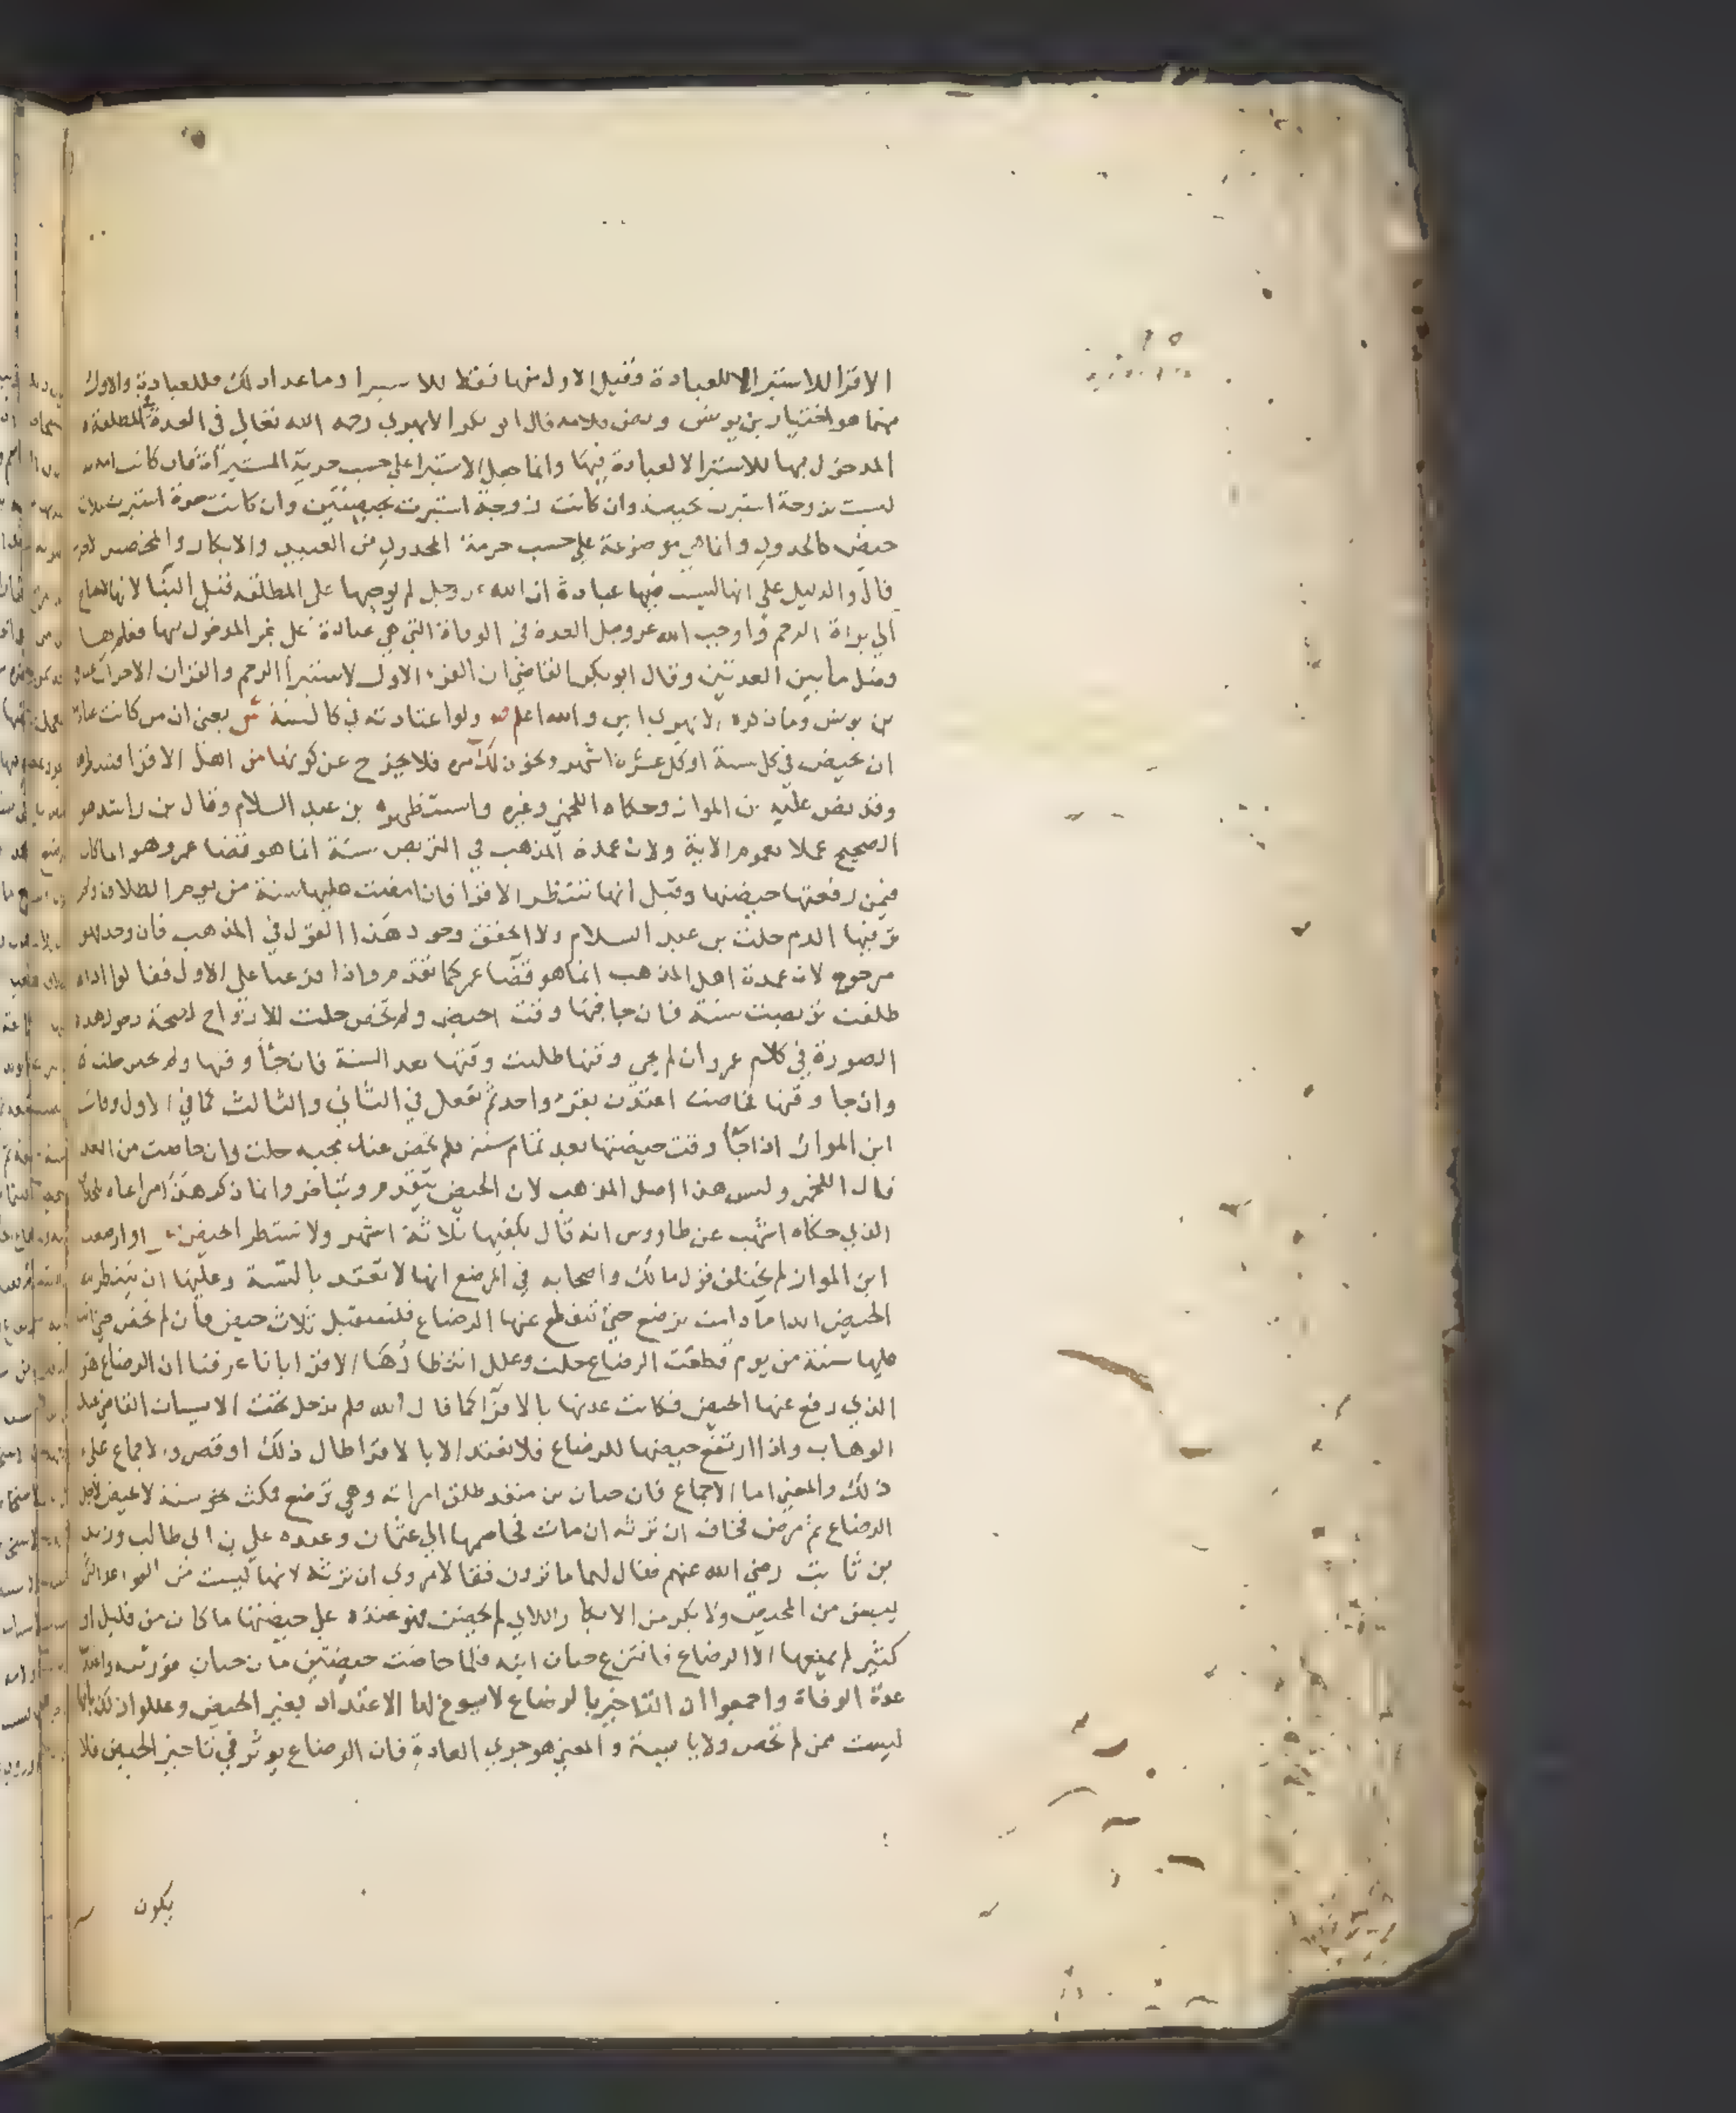 الاقرا للاستبرا لا للعبادة وقيل الاول منها فقط للاستبرا وما عدا ذلك فللعبادة والاول
منهما هو اختيار بن يونس ونص كلامه قال ابو بكر الابهري رحمه الله تعالى في العدة في المطلقة
المدخول بها للاستبرا لا لعبادة فيها وانما جعل الاستبرا على حسب حرية المستبرأة فان كانت امة
ليست بزوجة استبرت بحيضة وان كانت زوجة استبرت بحيضتين وان كانت حرة استبرت بثلاث
حيض كالحدود وانما هي موضوعة على حسب حرمة المحدود من العبيد والابكار والمحصنين
قال والدليل على انها ليست فيها عبادة ان الله عز وجل لم يوجبها على المطلقة قبل البنا لانها
الى براة الرحم واوجب الله عز وجل العدة في الوفاة التي هي عبادة على غير المدخول بها فعلم بها
وفصل ما بين العدتين وقال ابو بكر القاضي ان القرء الاول لاستبرا الرحم والقران الاخران
بن يونس وما ذكره الابهري ابين والله اعلم ص ولو اعتادته في كالسنة ش يعني ان من كانت عادتها
ان تحيض في كل سنة او كل عشرة اشهر ونحو ذلك مرة فلا يخرج عن كونها من اهل الاقرا فتنتظره
وقد نص عليه بن المواز وحكاه اللخمي وغيره واستظهره بن عبد السلام وقال بن راشد هو
الصحيح عملا بعموم الاية ولان عمدة المذهب في التربص سنة انما هو قضا عمر وهو انما كان
فيمن رفعتها حيضتها وقيل انها تنتظر الاقرا فاذا مضت عليها سنة من يوم الطلاق ولم
تر فيها الدم حلت بن عبد السلام ولا احقق وجود هذا القول في المذهب فان وجد فهو
مرجوح لان عمدة اهل المذهب انما هو قضا عمر كما تقدم واذا فرعنا على الاول فقالوا اذا
طلقت تربصت سنة فان جا فيها وقت الحيض ولم تحض حلت للازواج لصحة دخول هذه
الصورة في كلام عمر وان لم يجي وقتها طلبت وقتها بعد السنة فان جا وقتها ولم تحض حلت
وان جا وقتها فحاضت اعتدت بقرء واحد ثم تفعل في الثاني والثالث كما في الاول وقال
ابن المواز اذا جا وقت حيضتها بعد تمام سنة فلم تحض عند مجيه حلت وان حاضت من الغد
قال اللخمي وليس هذا اصل المذهب لان الحيض يتقدم ويتاخر وانما ذكر هذا مراعاه للخلاف
الذي حكاه اشهب عن طاووس انه قال يكفيها ثلاثة اشهر ولا تنتظر الحيض ص او ارضعت
ابن المواز لم يختلف قول مالك واصحابه في المرضع انها لا تعتد بالسنة وعليها ان تنتظر
الحيض ابدا ما دامت ترضع حتى تنقطع عنها الرضاع فلتستقبل ثلاث حيض فان لم تحض حتى
عليها سنة من يوم قطعت الرضاع حلت وعلل انتظارها الاقرا بانا عرفنا ان الرضاع هو
الذي رفع عنها الحيض فكانت عدتها بالاقرا كما قال الله فلم تدخل تحت الايسات القاضي عبد
الوهاب واذا ارتفع حيضها للرضاع فلا تعتد الا بالاقرا طال ذلك او قصر والاجماع على
ذلك والمعنى اما الاجماع فان حبان بن منقذ طلق امراته وهي ترضع فمكثت نحو سنة لا تحيض لاجل
الرضاع ثم مرض فخاف ان ترثه ان مات فخاصمها الى عثمان وعنده علي بن ابي طالب وزيد
بن ثابت رضي الله عنهم فقال لهما ما تزون فقالا نرى ان ترثه لانها ليست من القواعد اللائي
ييسن من المحيض ولا بكر من الابكار اللائي لم يحضن فهي عنده على حيضتها ما كان من قليل او
كثير لم يمنعها الا الرضاع فانتزع حبان ابنه فلما حاضت حيضتين مات حبان فورثته واعتدت
عدة الوفاة واجمعوا ان التاخير بالرضاع لا يسوغ لها الاعتداد بغير الحيض وعللوا ذلك بانها
ليست ممن لم تحض ولا يايسة والمعنى هو جري العادة فان الرضاع يوثر في تاخير الحيض فلا
يكون